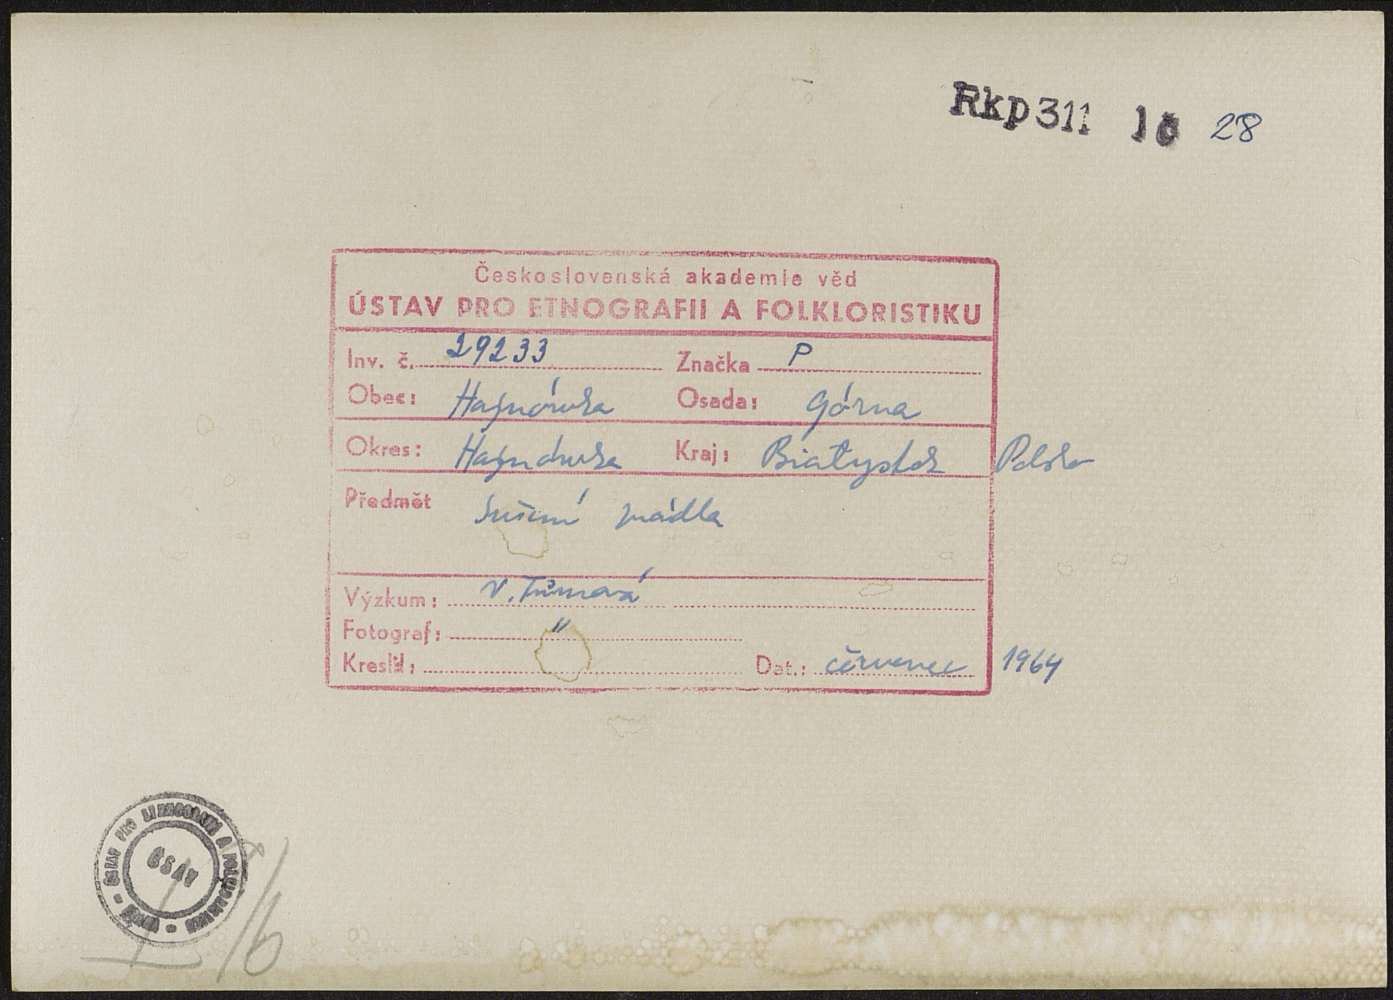 Rkp 311 1č 28
Československá akademie věd
ÚSTAV PRO ETNOGRAFII A FOLKLORISTIKU
Inv. č. 29233 Značka P
Obec: Hajnówka Osada: Górna
Okres: Hajnówka Kraj: Białystok Polsko
Předmět Sušení prádla
Výzkum: V. Tůmová
Fotograf: "
Kreslil:
Dat.: červenec 1964
ÚSTAV PRO ETNOGRAFII A FOLKLORISTIKU
ČSAV